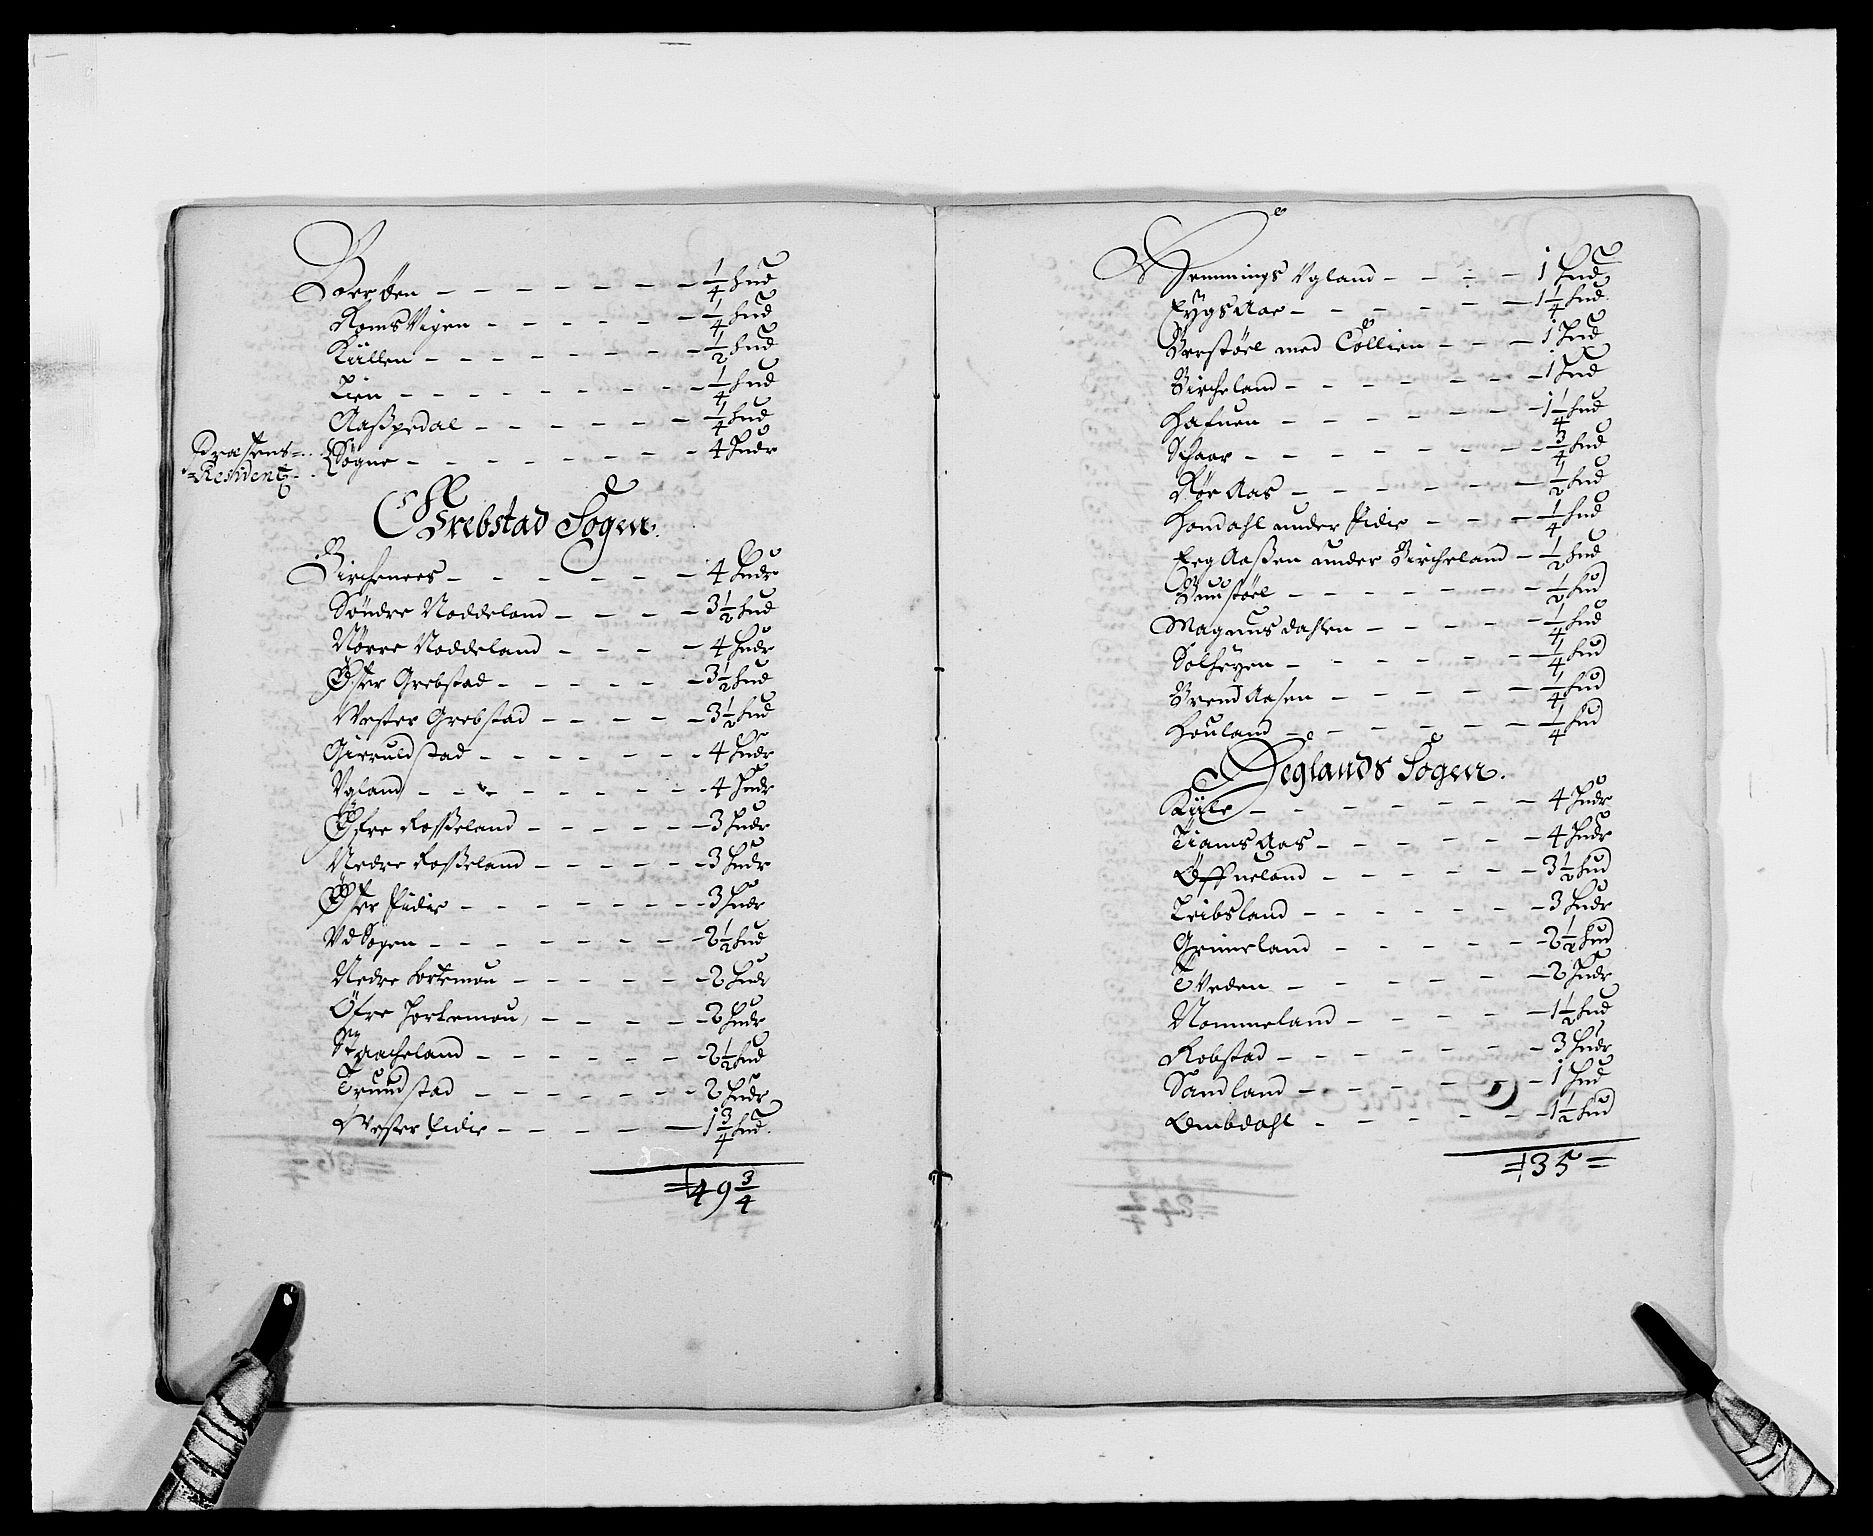 Boerøen - - - - - - - 1/4 hud
RomsVigen - - - - - - 1/4 hud
Küllen - - - - - - - - 1/2 hud
Lien - - - - - - - - 1/4 hud
Aaßpedal - - - - - - 1/4 hud
Præstens Residentz Søgne - - - - - - - - 4 Huder
Grebstad Sogen.
Birchenees - - - - - - - 4 Huder
Søndre Noddeland - - - - 3 1/2 hud
Nørre Noddeland - - - - 4 Huder
Øster Grebstad - - - - - - 3 1/2 hud
Wester Grebstad - - - - - 3 1/2 hud
Gieruldstad - - - - - - - 4 Huder
Vgland - - - - - - - - 4 Huder
Øfre Rosßeland - - - - - - 3 Huder
Nedre Rosßeland - - - - - - 3 Huder
Øster Eidie - - - - - - - - 3 Huder
VdSogen - - - - - - - - 2 1/2 hud
Nedre hortemou - - - - - - 2 Huder
Øfre Hortemou, - - - - - 2 Huder
Straacheland - - - - - - 2 1/2 hud
Trundstad - - - - - - - 2 Huder
Wester Eidie - - - - - - 1 3/4 hud.
= 49 3/4
Hemmings Vgland - - - - 1 Hud
Rygs Aae - - - - - - 1 1/4 hud.
Berstøel med Collien - - - 1 Hud
Bircheland - - - - - - - 1 Hud
Hafuen - - - - - - - 1 1/4 hud
Schaar - - - - - - - - 3/4 hud
Rør Aas - - - - - - - 1/2 hud
Homdahl under Eidie - - - 1/4 hud
Eeg Aaßen under Bircheland - 1/2 hud
Buustøel - - - - - - - 1/2 hud
Magnusdahlen - - - - - 1/4 hud
Solhøyen - - - - - - - 1/4 hud
Brend Aasen - - - - - - 1/4 hud
Houland - - - - - - - 1/4 hud
Øeglands Sogen.
Küle - - - - - - - - 4 Huder
Tiams Aas - - - - - - 4 Huder
Øffueland - - - - - - 3 1/2 hud
Leibsland - - - - - - - 3 Huder
Grimeland - - - - - - 2 1/2 hud
Tveden - - - - - - - 2 Huder
Nommeland - - - - - - 1 1/2 hud
Robstad - - - - - - - 3 Huder
Sandland - - - - - - - 1 Hud
Ombdahl - - - - - - - 1 1/2 hud
= 35 =